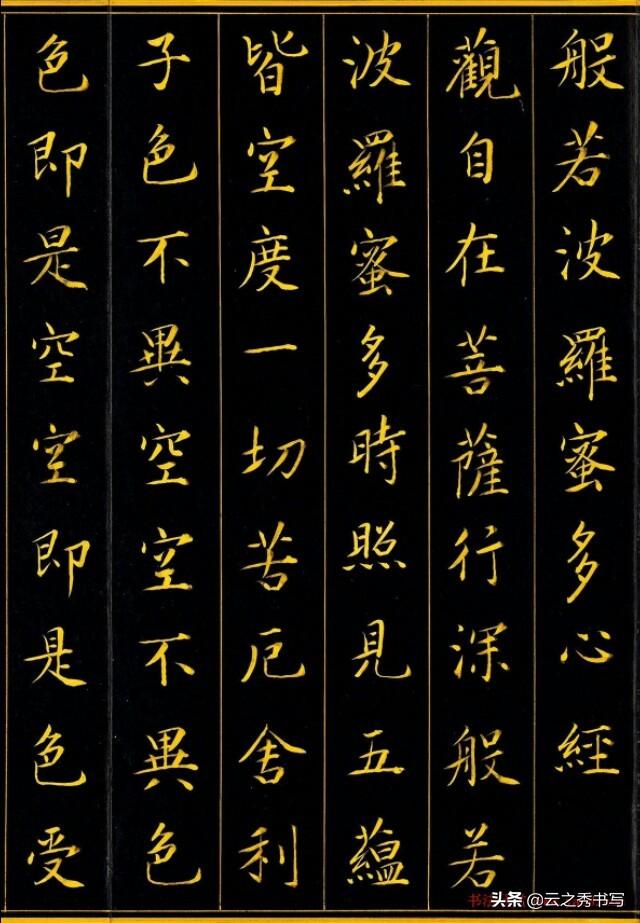 般若波羅蜜多心經
觀自在菩薩行深般若
波羅蜜多時照見五蘊
皆空度一切苦厄舍利
子色不異空空不異色
色即是空空即是色受
头条 @云之秀书写